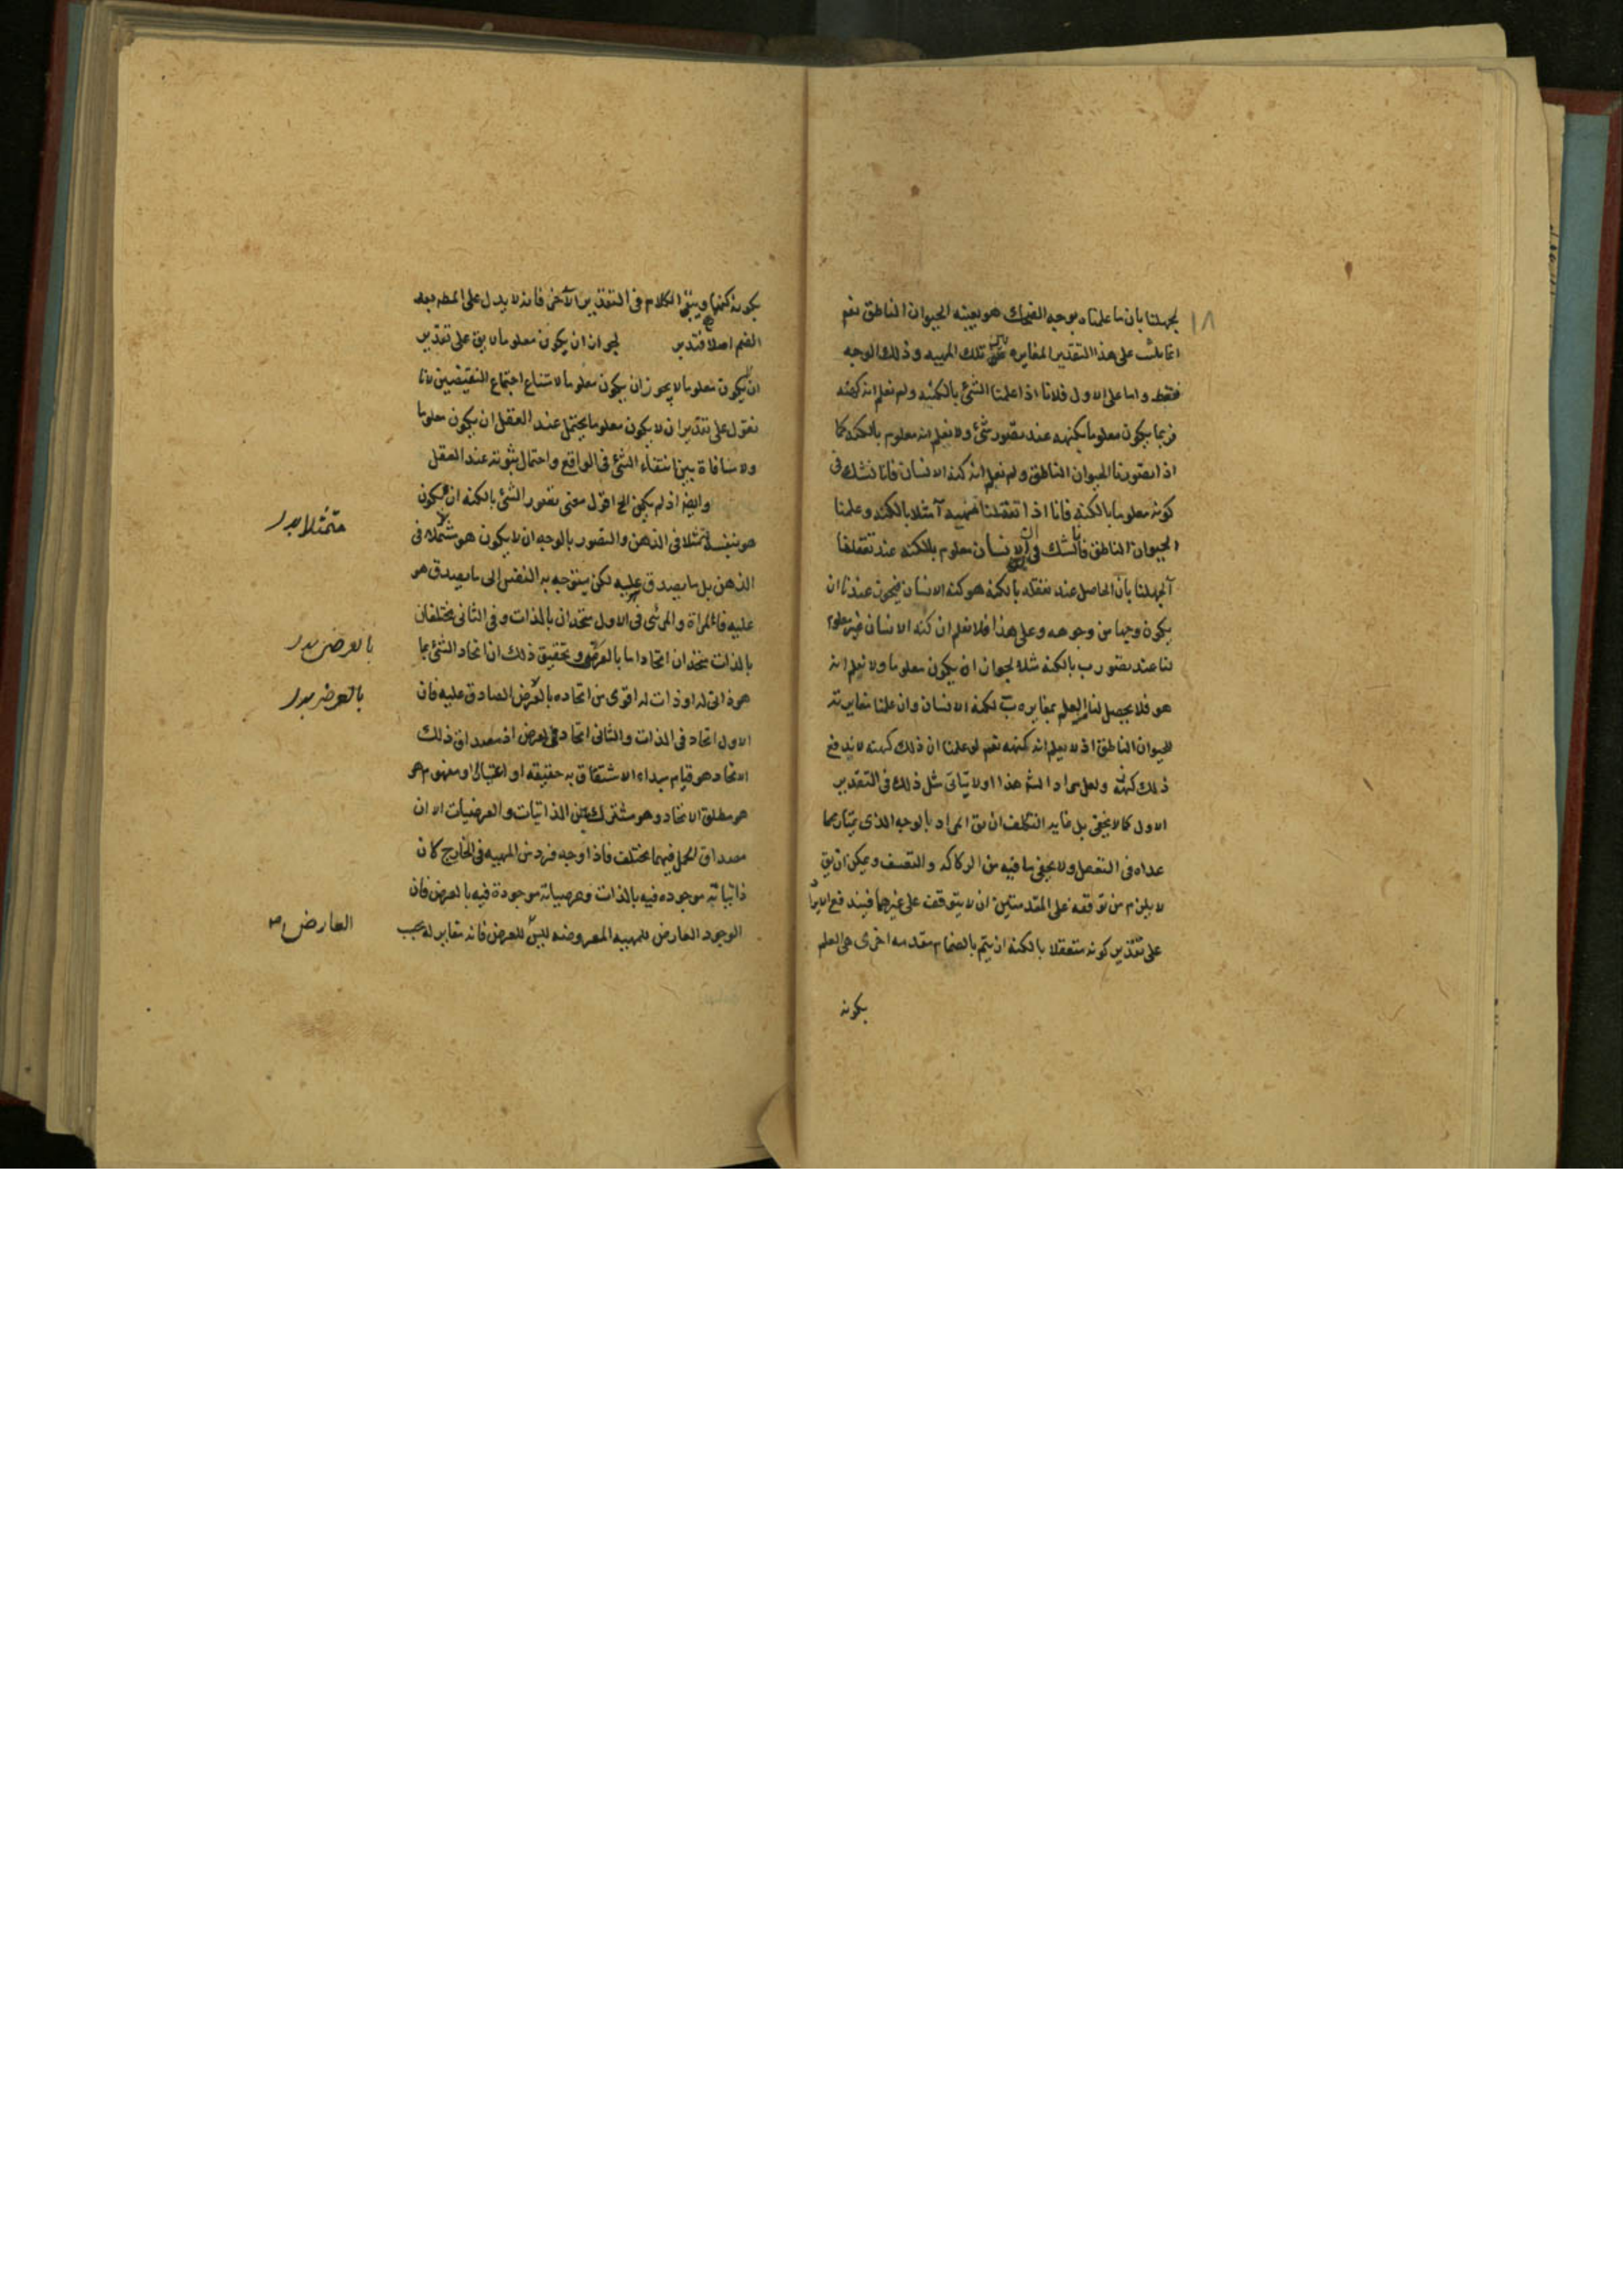 لجهلنا بان ما علمناه بوجه الضحك هو بعينه الحيوان الناطق نعم
١٨
انما يلزم على هذا التقدير المغايرة بين تلك المهيه وذلك الوجه
فقط واما على الاول فلانا اذا علمنا الشئ بالكنه ولم نعلم انه كنهه
فربما يكون معلوما بكنهه عند تصور شئ ولا نعلم انه معلوم بالكنه كما
اذا تصورنا الحيوان الناطق ولم نعلم انه كنه الانسان فانا نشك فى
كونه معلوما بالكنه فانا اذا تعقلنا مهية آ مثلا بالكنه وعلمنا
الحيوان الناطق فانا نشك فى ان الانسان معلوم بالكنه عند تعقلنا
آ لجهلنا بان الحاصل عند تعقله بالكنه هو كنه الانسان فيجوز عندنا ان
يكون وجها من وجوهه وعلى هذا فلا نعلم ان كنه الانسان غير معلوم
لنا عند تصور ب بالكنه مثلا لجواز ان يكون معلوما ولا نعلم انه
هو فلا يحصل لنا العلم بمغايرة ب لكنه الانسان وان علمنا مغايرته
للحيوان الناطق اذ لا نعلم انه كنهه نعم لو علمنا ان ذلك كنهه لاندفع
ذلك ولعل مراد الشم هذا اولا يتاتى مثل ذلك فى التقدير
الاول كما لا يخفى بل غاية التكلف ان يق المراد بالوجه الذى يمتاز بها
عداه فى التعقل ولا يخفى ما فيه من الركاكه والتعسف ويمكن ان يق
لا يلزم من توقفه على المقدمتين ان لا يتوقف على غيرهما فيندفع الايراد
على تقدير كونه متعقلا بالكنه ان يتم بانضمام مقدمه اخرى هى العلم
بكونه
بكونه كنهها ويبقى الكلام فى التقدير الآخر فانه لا يدل على المط بعد
الضم اصلا فتدبر لجواز ان يكون معلوما لا يق على تقدير
ان يكون معلوما لا يجوز ان يكون معلوما لامتناع اجتماع النقيضين لانا
نقول على تقدير ان لا يكون معلوما يحتمل عند العقل ان يكون معلوما
ولا منافاة بين انتفاء الشئ فى الواقع واحتمال ثبوته عند العقل
وايضا اذ لم يكن الخ اقول معنى تصور الشئ بالكنه ان يكون
هو بنفسه متمثلا فى الذهن والتصور بالوجه ان لا يكون هو متمثلا فى
متمثلا بدر
الذهن بل ما يصدق عليه لكن يتوجه به النفس الى ما يصدق هو
عليه فالمراة والمرئى فى الاول متحدان بالذات وفى الثانى مختلفان
بالذات متحدان اتحادا ما بالعرض وتحقيق ذلك ان اتحاد الشئ بما
بالعرض بدر
هو ذاتى له او ذات له اقوى من اتحاده بالعرض الصادق عليه فان
بالعرض بدر
الاول اتحاد فى الذات والثانى اتحاد فى العرض اذ مصداق ذلك
الاتحاد هو قيام مبداء الاشتقاق به حقيقه او اعتبارا ومفهوم هو
هو مطلق الاتحاد وهو مشترك بين الذاتيات والعرضيات الا ان
مصداق الحمل فيهما مختلف فاذا وجد فرد من المهيه فى الخارج كان
ذاتياته موجوده فيه بالذات وعرضياته موجودة فيه بالعرض فان
الوجود العارض للمهيه المعروضه ليس للعرض فانه مغاير له بحسب
العارض